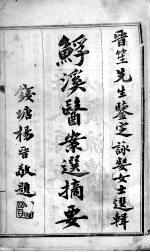 晉笙先生鑒定詠絮女士選輯
鯚溪醫案選摘要
錢塘楊晉敬題